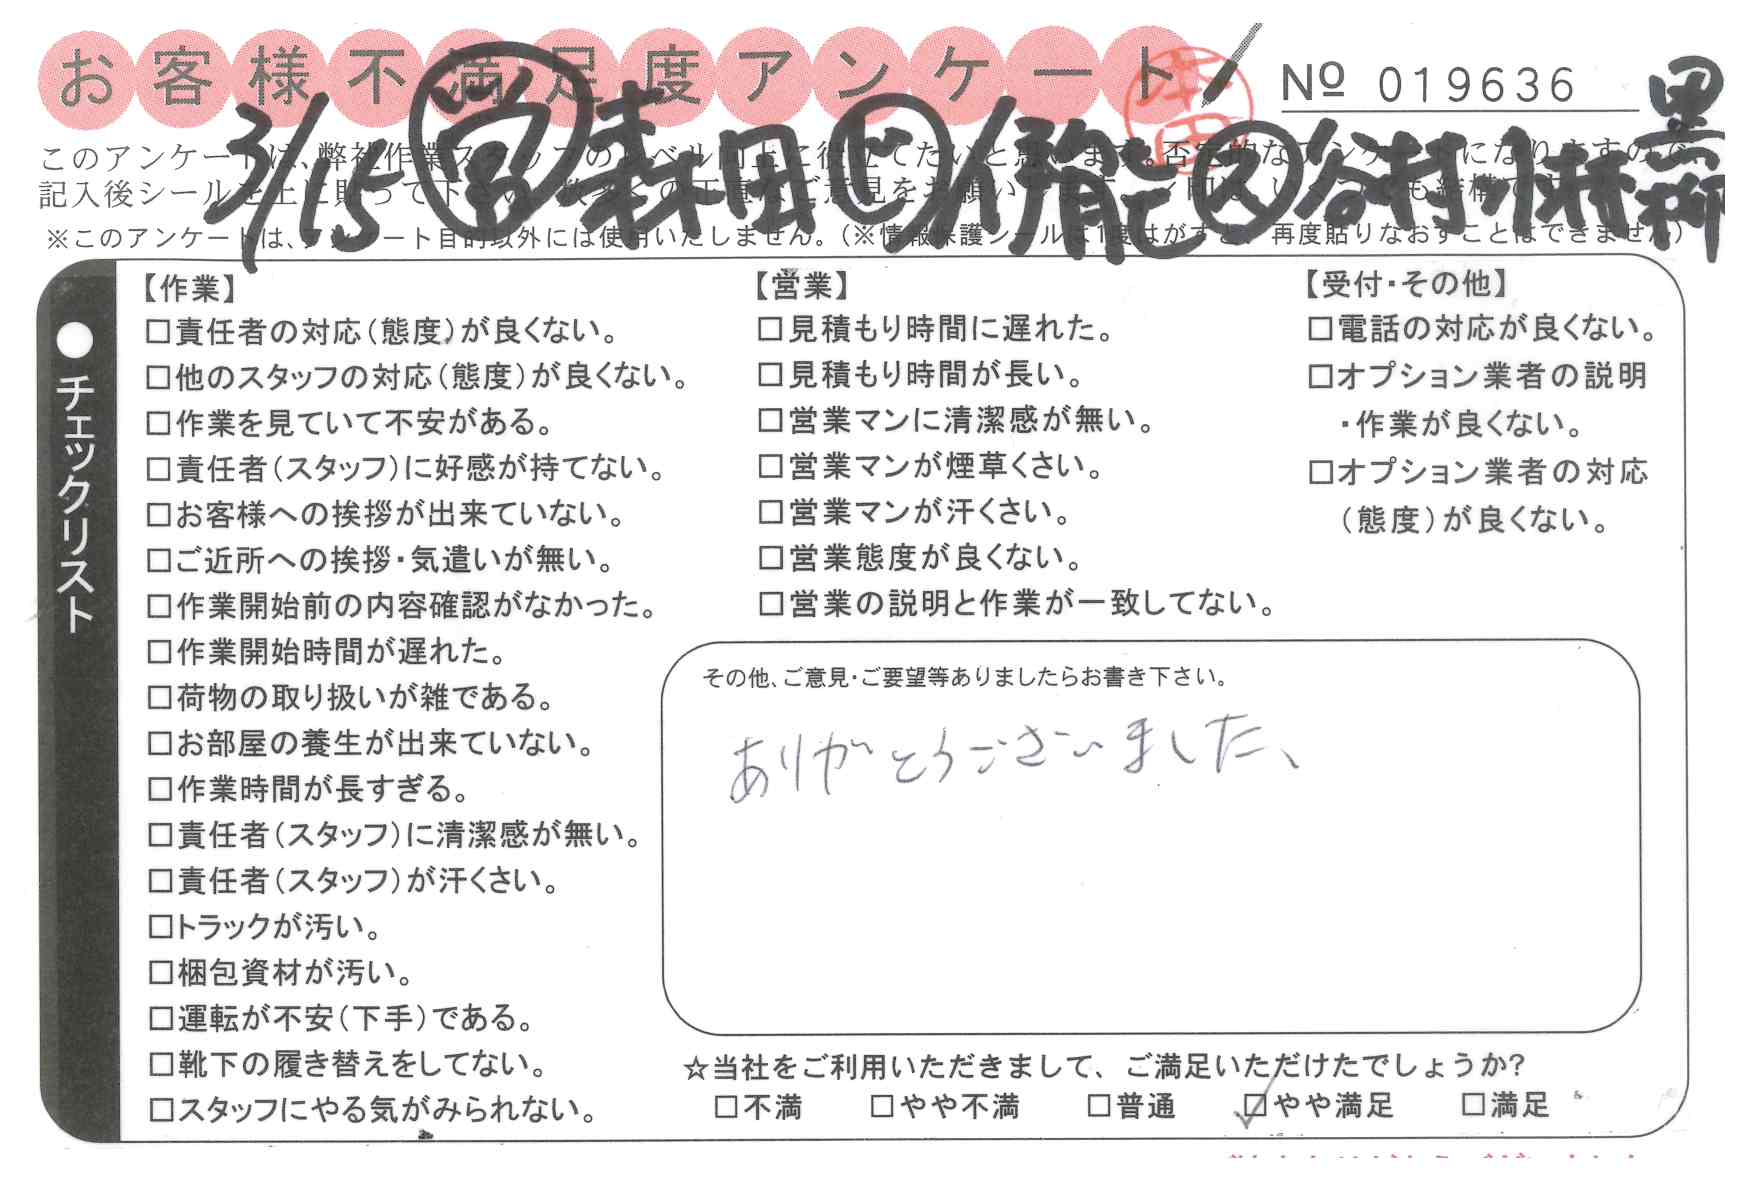 お客様不満足度アンケート
本田
№ 019636
3/15 営 森田 ビ 伊能 ス 谷村 小林 黒柳
このアンケートは、弊社作業スタッフのレベル向上に役立てたいと思います。否定的なアンケートになりますので、
記入後シールを上に貼って下さい。数多くの正直なご意見をお願いします。
※このアンケートは、アンケート目的以外には使用いたしません。（※情報保護シールは1度はがすと、再度貼りなおすことはできません）
●チェックリスト
【作業】
□責任者の対応（態度）が良くない。
□他のスタッフの対応（態度）が良くない。
□作業を見ていて不安がある。
□責任者（スタッフ）に好感が持てない。
□お客様への挨拶が出来ていない。
□ご近所への挨拶・気遣いが無い。
□作業開始前の内容確認がなかった。
□作業開始時間が遅れた。
□荷物の取り扱いが雑である。
□お部屋の養生が出来ていない。
□作業時間が長すぎる。
□責任者（スタッフ）に清潔感が無い。
□責任者（スタッフ）が汗くさい。
□トラックが汚い。
□梱包資材が汚い。
□運転が不安（下手）である。
□靴下の履き替えをしてない。
□スタッフにやる気がみられない。
【営業】
□見積もり時間に遅れた。
□見積もり時間が長い。
□営業マンに清潔感が無い。
□営業マンが煙草くさい。
□営業マンが汗くさい。
□営業態度が良くない。
□営業の説明と作業が一致してない。
【受付・その他】
□電話の対応が良くない。
□オプション業者の説明
・作業が良くない。
□オプション業者の対応
（態度）が良くない。
その他、ご意見・ご要望等ありましたらお書き下さい。
ありがとうございました、
☆当社をご利用いただきまして、ご満足いただけたでしょうか?
□不満 □やや不満 □普通 ☑やや満足 □満足